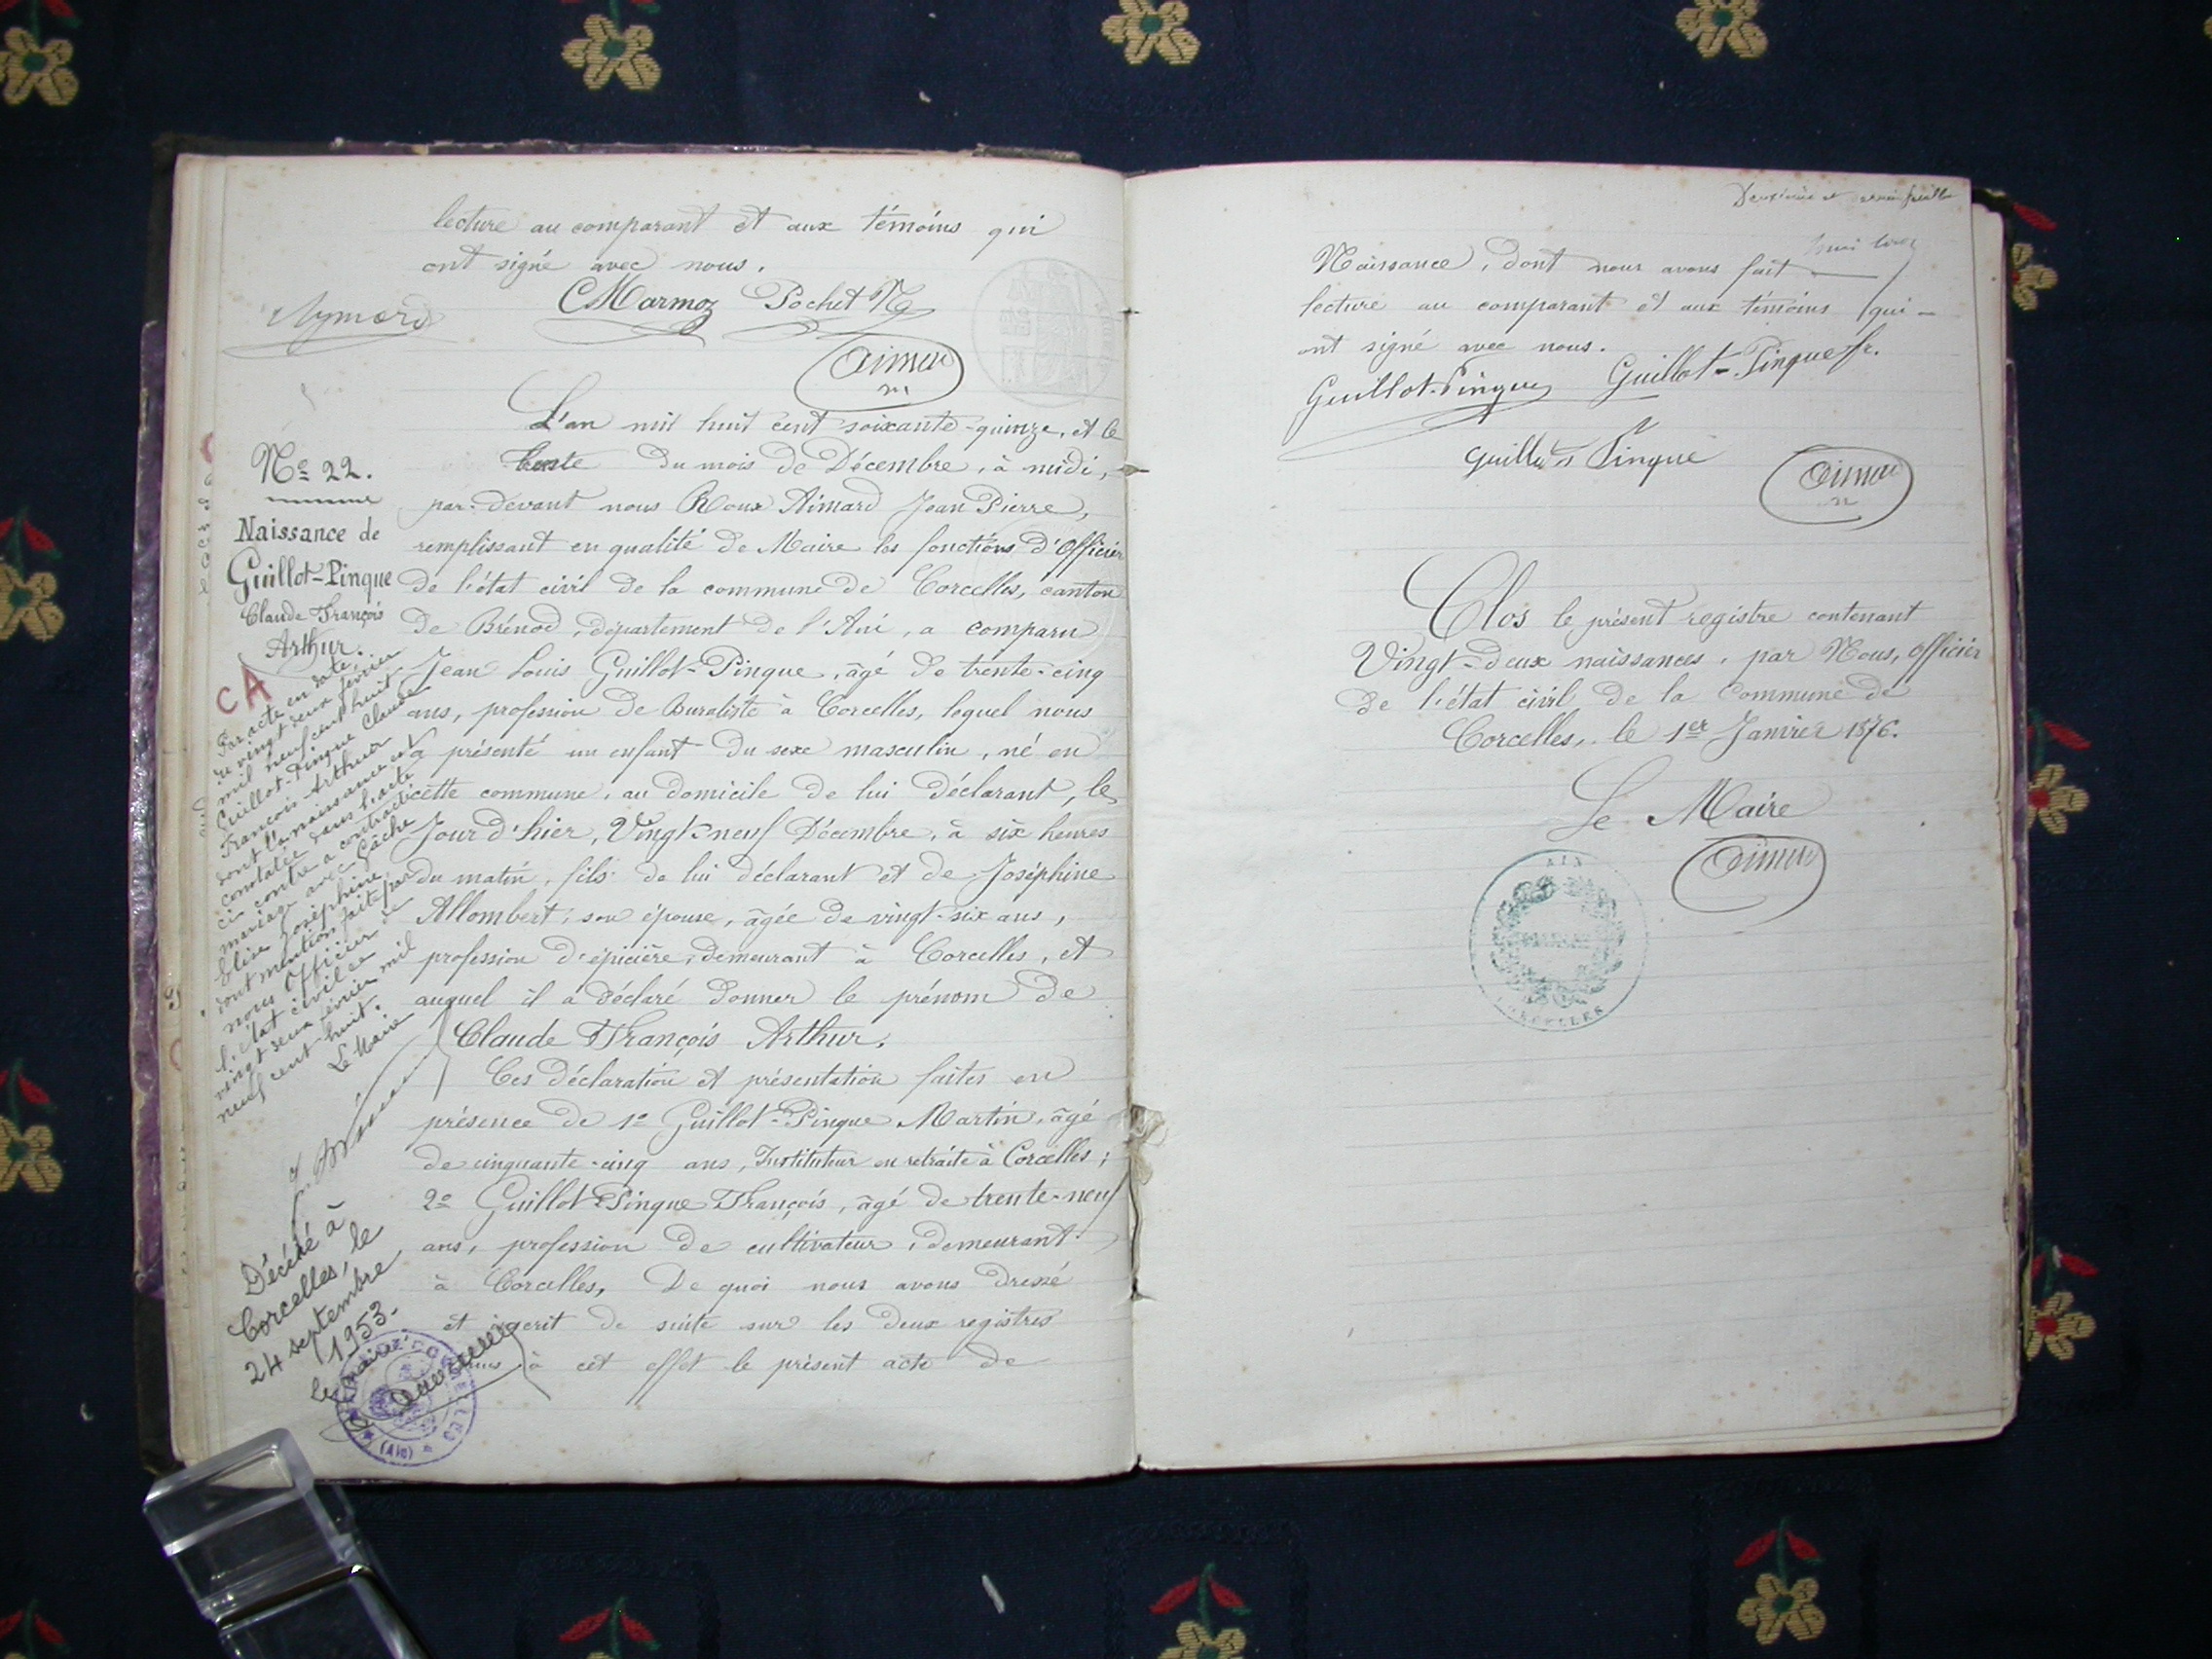 lecture au comparant et aux témoins qui
ont signé avec nous.
Aymard
CMarmoz Pochet
Aimar
L'an mil huit cent soixante-quinze, et le
trente du mois de Décembre, à midi,
par-devant nous Roux Aimard Jean Pierre,
remplissant en qualité de Maire les fonctions d'Officier
de l'état civil de la commune de Corcelles, canton
de Brénod, département de l'Ain, a comparu
Jean Louis Guillot-Pingue, âgé de trente-cinq
ans, profession de Buraliste à Corcelles, lequel nous
a présenté un enfant du sexe masculin, né en
cette commune, au domicile de lui déclarant, le
Jour d'hier, Vingt-neuf Décembre, à six heures
du matin, fils de lui déclarant et de Joséphine
Allombert, son épouse, âgée de vingt-six ans,
profession d'épicière, demeurant à Corcelles, et
auquel il a déclaré donner le prénom de
Claude François Arthur.
Ces déclaration et présentation faites en
présence de 1º Guillot-Pingue Martin, âgé
de cinquante-cinq ans, Instituteur en retraite à Corcelles;
2º Guillot-Pingue François, âgé de trente-neuf
ans, profession de cultivateur, demeurant
à Corcelles, De quoi nous avons dressé
et inscrit de suite sur les deux registres
tenus à cet effet le présent acte de
Nº 22.
Naissance de
Guillot-Pingue
Claude François
Arthur.
CA
Par acte en date
du vingt deux février
mil neuf cent huit,
Guillot-Pingue Claude
François Arthur
dont la naissance est
constatée dans l'acte
ci-contre a contracté
mariage avec Gâche
Elise Joséphine,
dont mention faite par
nous Officier de
l'état civil ce
vingt deux février mil
neuf cent huit.
Le Maire
Décédé à
Corcelles, le
24 septembre
1953.
Le maire:
CORCELLES
(Ain)
Deuxième et feuille
Naissance, dont nous avons fait
lecture au comparant et aux témoins qui
ont signé avec nous.
Guillot-Pingue Guillot-Pingue fr.
Guillot Pingue
Aimar
Clos le présent registre contenant
Vingt-deux naissances, par Nous, Officier
de l'état civil de la Commune de
Corcelles, le 1er Janvier 1876.
Le Maire
Aimar
AIN
CORCELLES